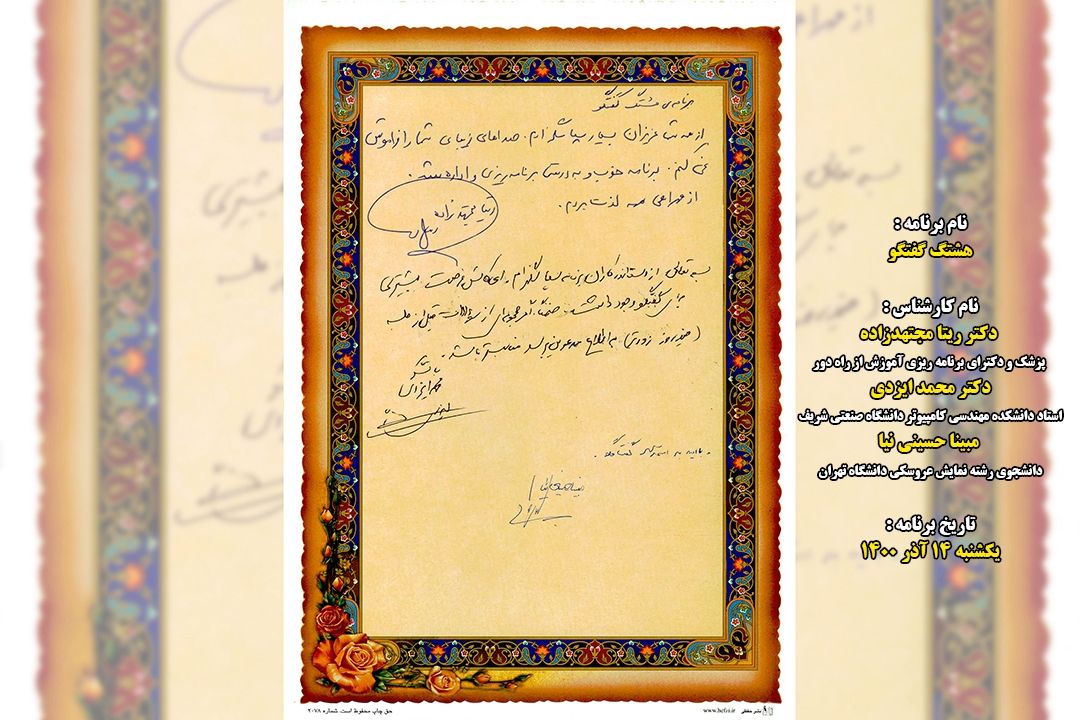 برنامه‌ی هشتگ گفتگو
از همه شما عزیزان بسیار سپاسگزارم. صداهای زیبای شما را فراموش
نمی کنم. برنامه خوب و به درستی برنامه ریزی و اداره شد.
از همراهی همه لذت بردم.
ریتا مجتهدزاده
بسمه تعالی از دست اندرکاران برنامه سپاسگزارم. فرصت بیشتری
برای گفتگو وجود داشته باشد ضمناً اگر مجموعه‌ای از سوالات قبل از جلسه
(چند روز زودتر) به اطلاع مدعوین برسد مناسبتر باشد.
با تشکر
محمد ایزدی
نام برنامه :
هشتگ گفتگو
نام کارشناس :
دکتر ریتا مجتهدزاده
پزشک و دکترای برنامه ریزی آموزش از راه دور
دکتر محمد ایزدی
استاد دانشکده مهندسی کامپیوتر دانشگاه صنعتی شریف
مبینا حسینی نیا
دانشجوی رشته نمایش عروسکی دانشگاه تهران
تاریخ برنامه :
یکشنبه ۱۴ آذر ۱۴۰۰
حق چاپ محفوظ است. شماره ۲۰۷۸
www.hefzi.ir